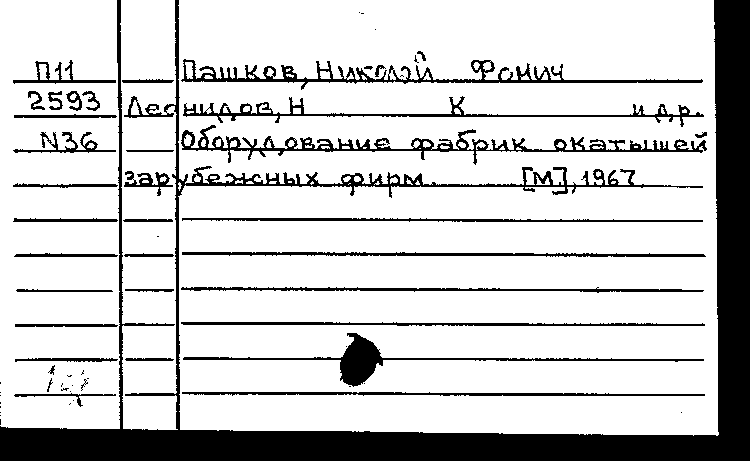 П11 Пашков, Николай Фомич
2593 Леонидов, Н К и др.
N36 Оборудование фабрик окатышей
зарубежных фирм. [М.], 1967